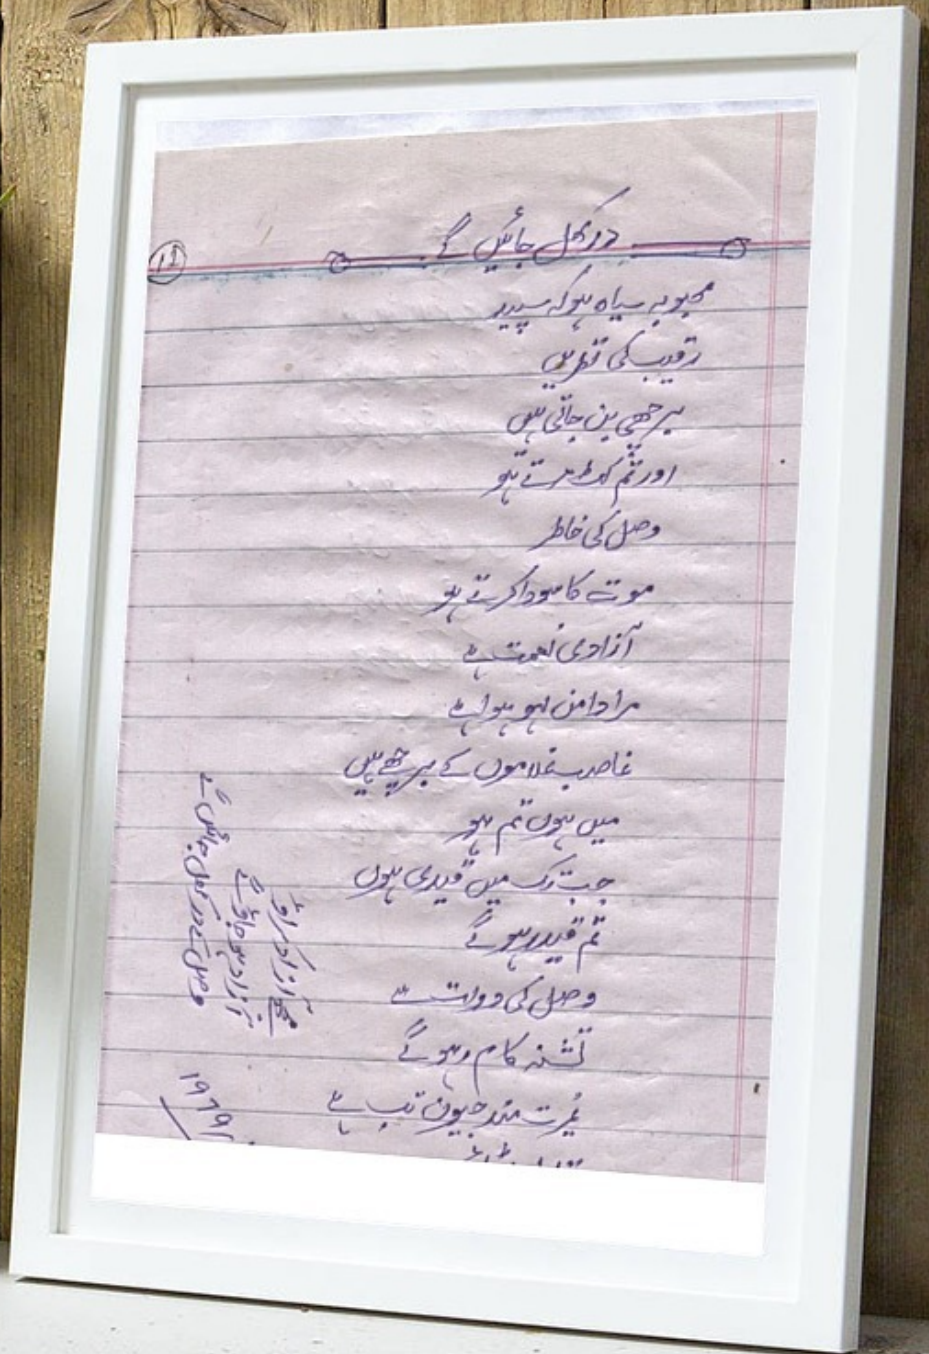 در کھل جائیں گے
۱۱
محبوبہ سیاہ ہو کہ سپید
رقیب کی نظریں
برچھی بن جاتی ہیں
اور تم کٹ مرتے ہو
وصل کی خاطر
موت کا سودا کرتے ہو
آزادی نعمت ہے
مرا دامن لہو ہوا ہے
غاصب غلاموں کے پرچے ہیں
میں ہوں تم ہو
جب تک میں قیدی ہوں
تم قید رہو گے
وصل کی دولت سے
تشنہ کام رہو گے
غیرت مند جیون تب ہے
مجھے آزاد کراؤ
آزاد ہو جاؤ گے
وصل کے در کھل جائیں گے
۱۹۷۹